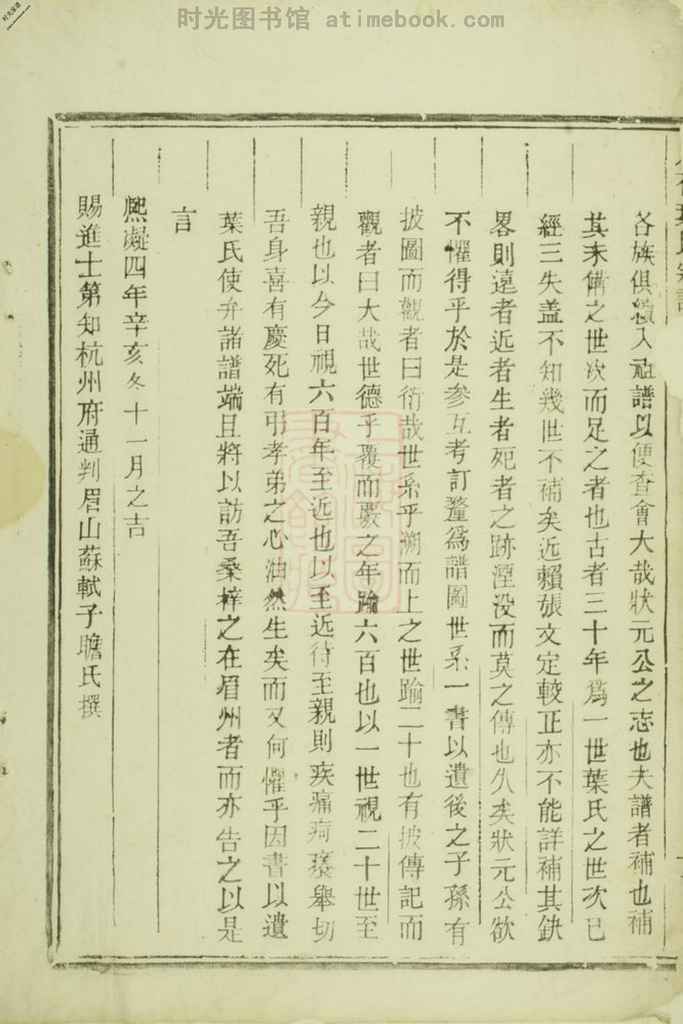 时光图书馆 atimebook.com
各族俱纉入祖譜以便查會大哉狀元公之志也夫譜者補也補
其未備之世次而足之者也古者三十年為一世葉氏之世次已
經三失盖不知幾世不補矣近賴張文定較正亦不能詳補其鈌
畧則遠者近者生者死者之跡湮没而莫之傳也久矣狀元公欲
不懼得乎於是參互考訂釐為譜圖世系一書以遺後之子孫有
披圖而觀者曰衍哉世系乎溯而上之世踰二十也有披傳記而
觀者曰大哉世德乎覆而覈之年踰六百也以一世視二十世至
親也以今日視六百年至近也以至近待至親則疾痛疴癢舉切
吾身喜有慶死有弔孝弟之心油然生矣而又何懼乎因書以遺
葉氏使弁諸譜端且將以訪吾桑梓之在眉州者而亦告之以是
言
熈凝四年辛亥冬十一月之吉
賜進士第知杭州府通判眉山蘇軾子瞻氏撰